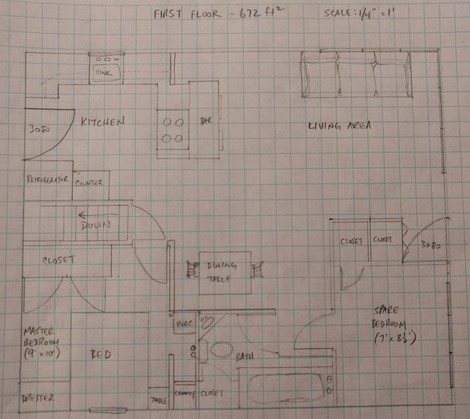 FIRST FLOOR - 672 ft²
SCALE: 1/4" = 1'
SINK
KITCHEN
BAR
LIVING AREA
3080
REFRIGERATOR
COUNTER
DOWN
CLOSET
CLOSET
CLOSET
3080
DINING
TABLE
MASTER
BEDROOM
(9' x 10')
BED
HVAC
BATH
SPARE
BEDROOM
(7' x 8½')
DRESSER
TABLE
CLOSET